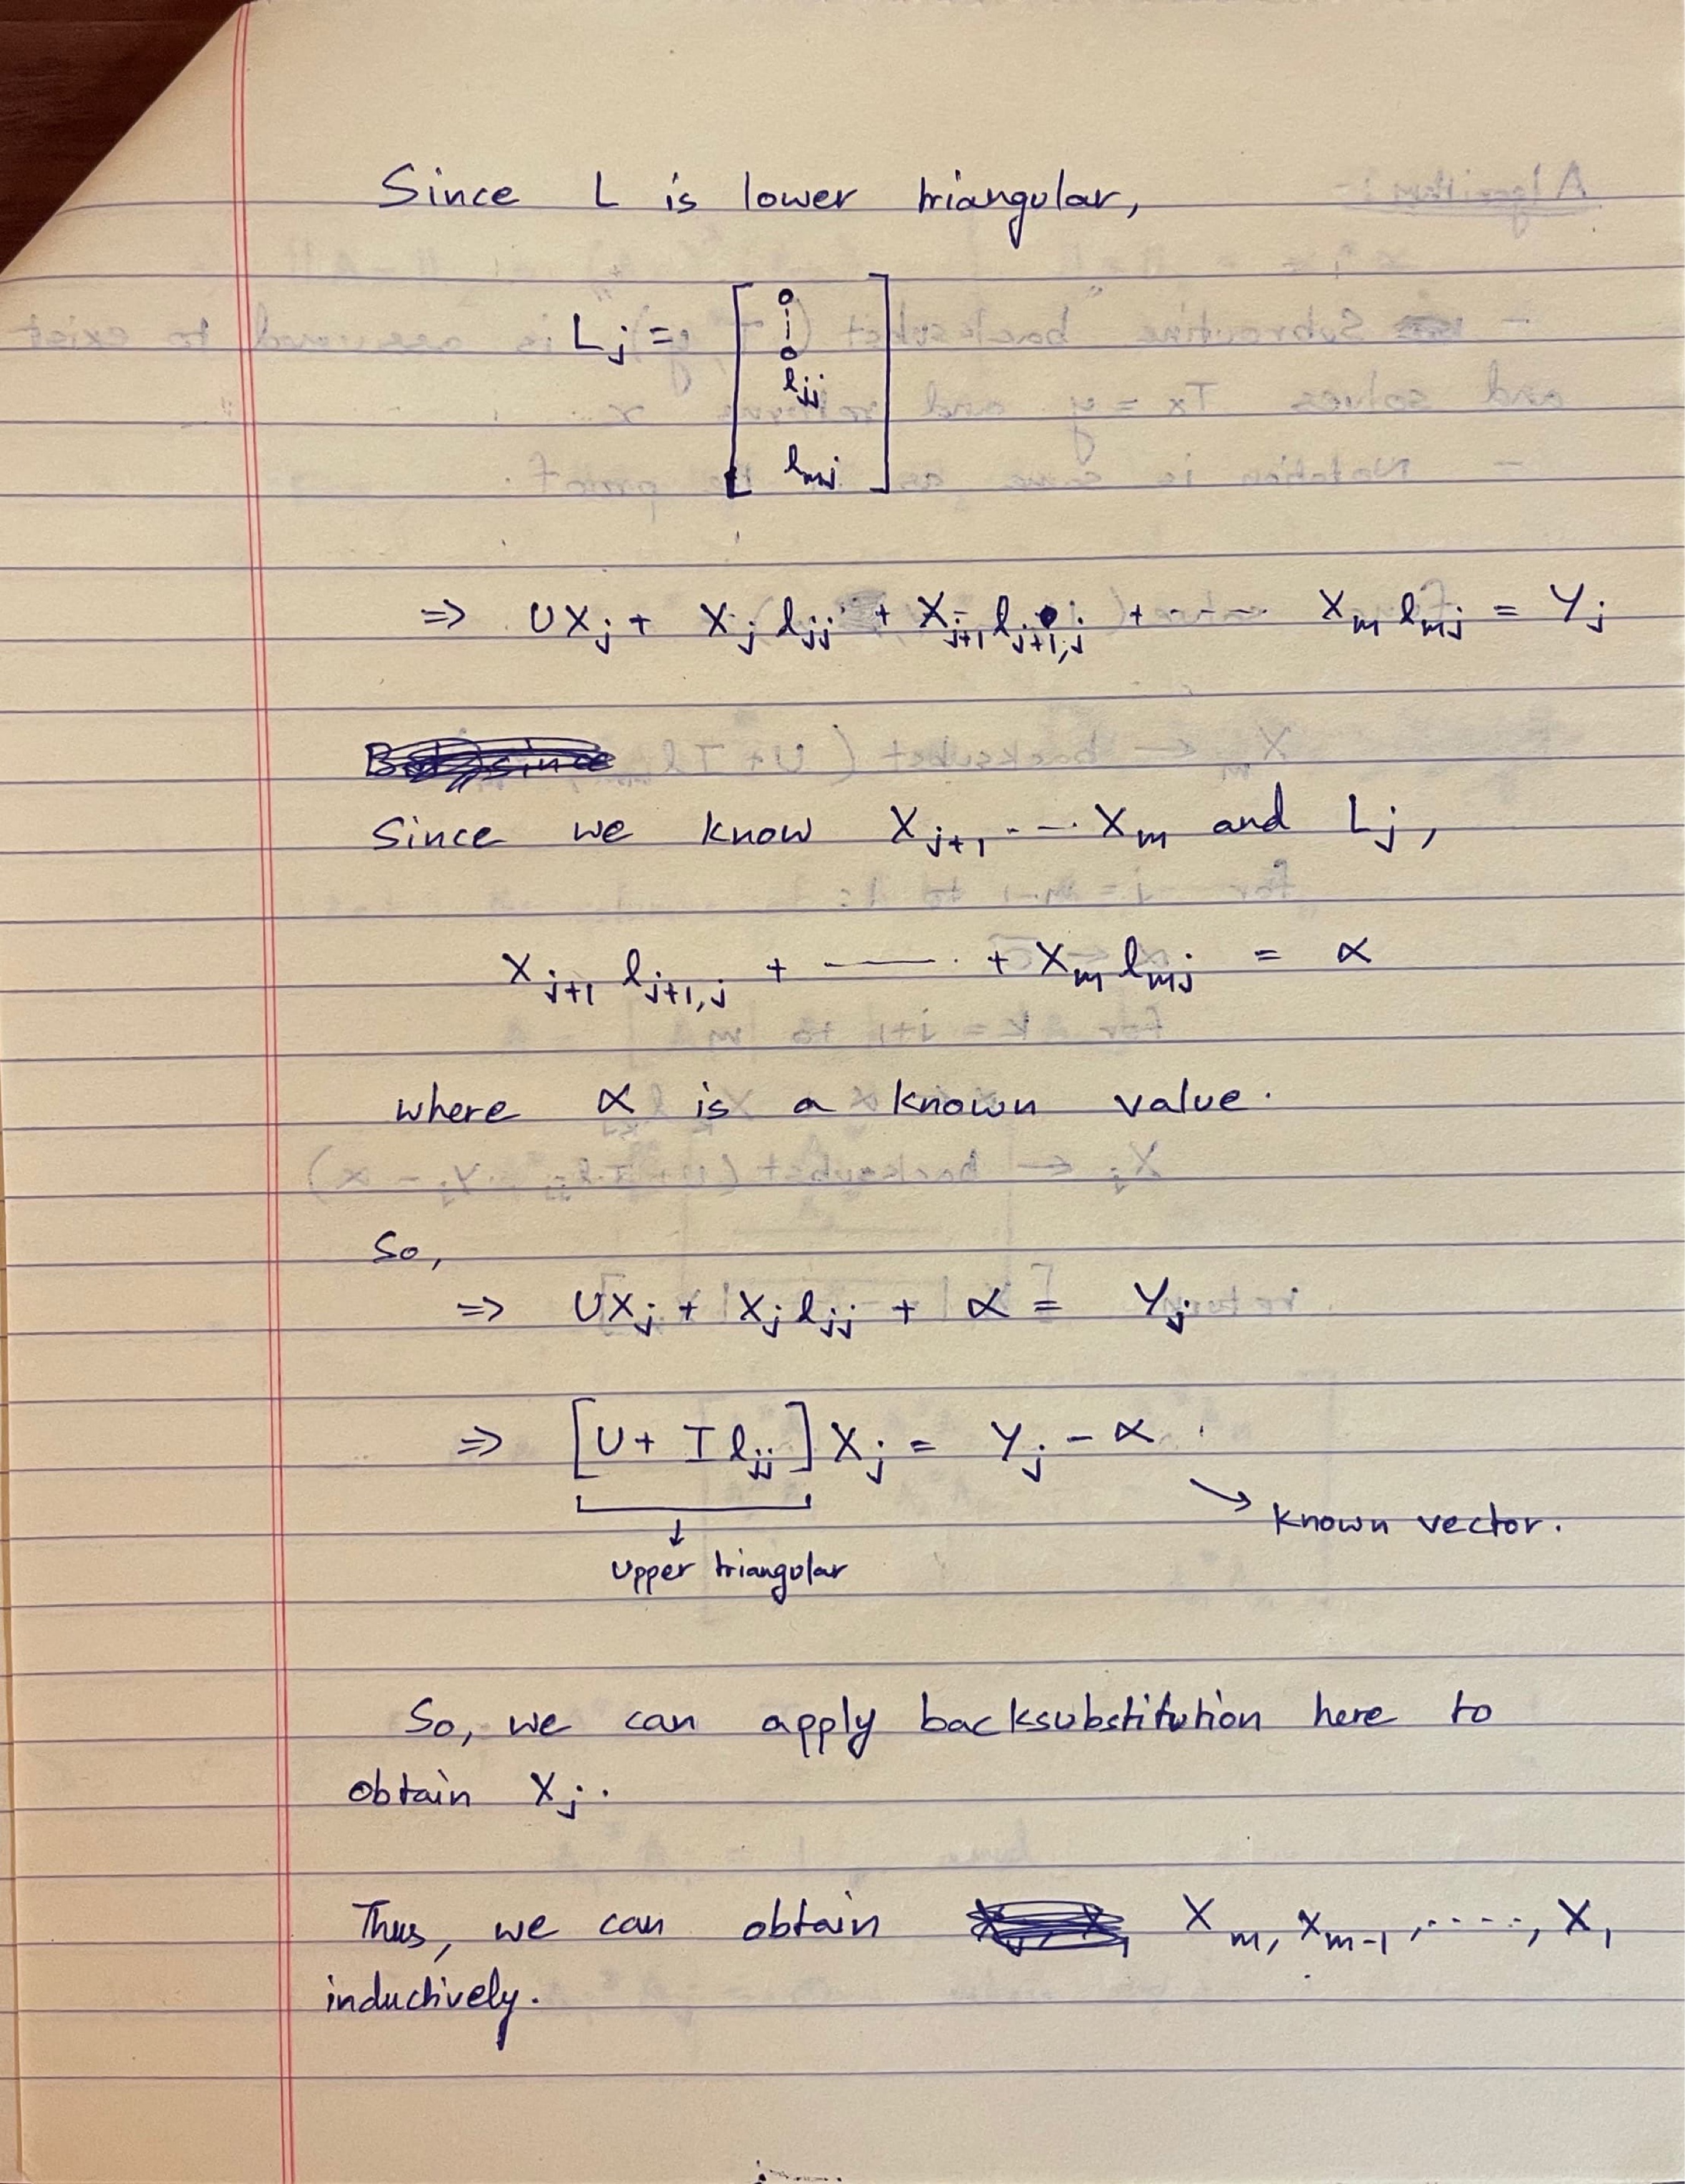 Since L is lower triangular,
L_j = [ 0 ⋮ 0 l_jj l_mj ]
⇒ UX_j + X_j l_jj + X_j+1 l_j+1,j + ---- X_m l_mj = Y_j
Since we know X_j+1 ---- X_m and L_j,
X_j+1 l_j+1,j + ---- + X_m l_mj = α
where α is a known value.
So,
⇒ UX_j + X_j l_jj + α = Y_j
⇒ [U + I l_jj] X_j = Y_j - α
↓ ↘ Known vector.
Upper triangular
So, we can apply backsubstitution here to
obtain X_j.
Thus, we can obtain X_m, X_m-1, ----, X_1
inductively.